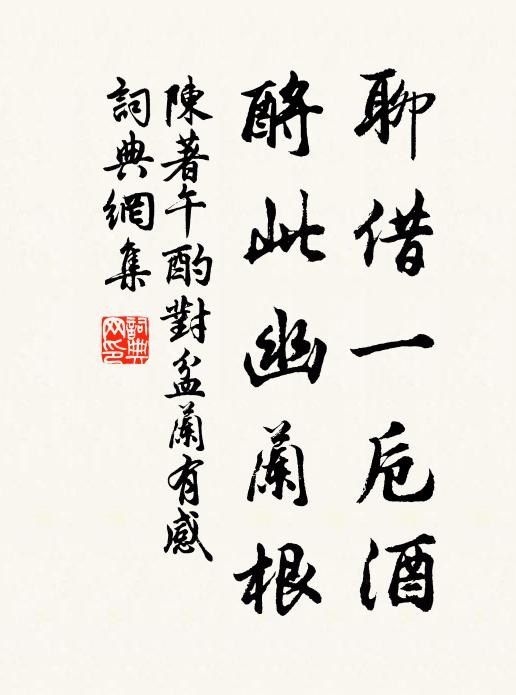 聊借一卮酒
酹此幽蘭根
陳著午酌對盆蘭有感
詞典網集
詞典网印